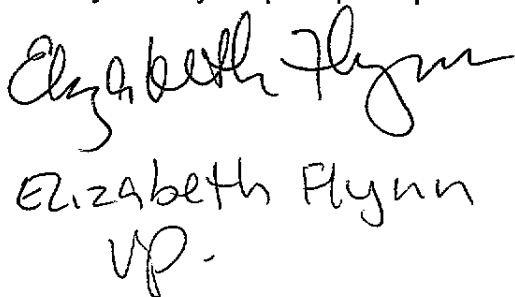 Elizabeth Flynn
Elizabeth Flynn
VP.